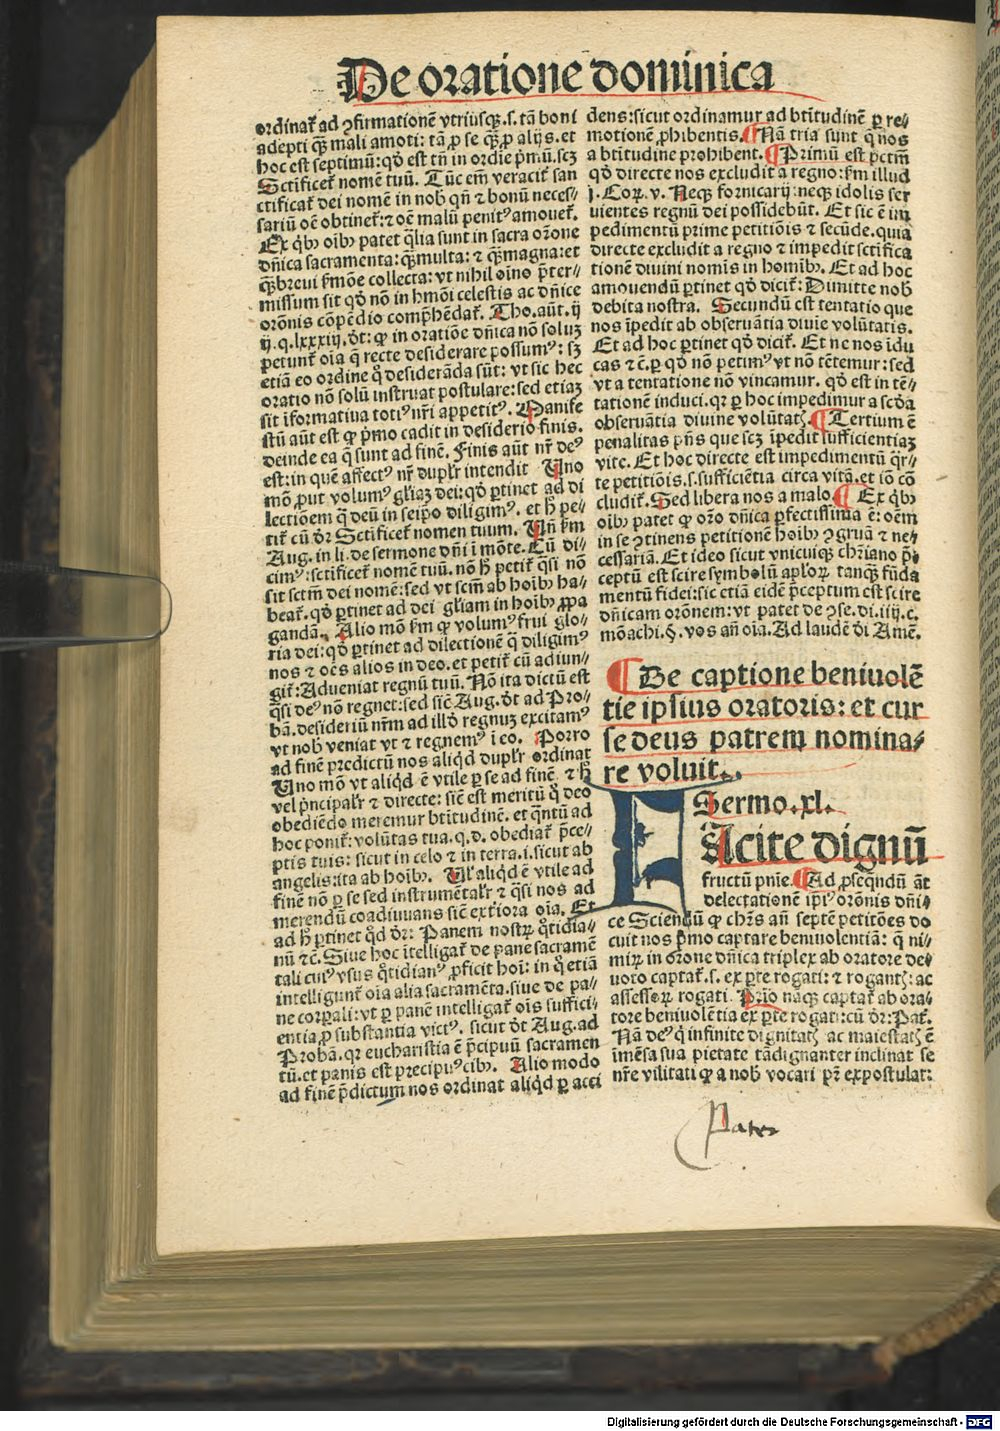 De oratione dominica
ordinat̃ ad ꝯfirmationẽ vtriusqꝫ.s.tã boni
adepti qꝫ̃ mali amoti: tã ꝓ se qꝫ̃ ꝓ alijs.et
hoc est septimũ: qđ est tñ in ordie p̃mũ.scꝫ
Sctificet̃ nomẽ tuũ. Tũc em̃ veracit̃ san
ctificat̃ dei nomẽ in nob qñ ⁊ bonũ neces-/
sariũ oẽ obtinet̃: ⁊ oẽ malũ penitꝰ amouet̃.
Ex q̃bꝫ oibꝫ patet q̃lia sunt in sacra oȓone
dñica sacramenta: qꝫ̃ multa: ⁊ qꝫ̃ magna: et
qꝫ̃ breui ẜmõe collecta: vt nihil oĩno p̃ter-/
missum sit qđ nõ in hm̃õi celestis ac dñice
orõnis cõpẽdio comp̃hẽdat̃. Tho.aũt.ij
ij.q.lxxxiij.đt: ꝙ in oratiõe dñica nõ soluꝫ
petunt̃ oĩa q̃ recte desiderare possumꝰ: sꝫ
etiã eo ordine q̊ desiderãda sũt: vt sic hec
oratio nõ solũ instruat postulare: sed etiaꝫ
sit ĩformatiua totiꝰ nr̃i appetitꝰ. Manife
stũ aũt est ꝙ p̃mo cadit in desiderio finis.
deinde ea q̃ sunt ad finẽ. Finis aũt nr̃ deꝰ
est: in quẽ affectꝰ nr̃ duplr̃ intendit Uno
mõ ꝓut volumꝰ gl̃iaꝫ dei: qđ ꝑtinet ad di
lectiõem q̃ deũ in seip̃o diligimꝰ. et ħ pe-/
tit̃ cũ đr Sctificet̃ nomen tuum. Uñ ẜm
Aug.in li.de sermone dñi ĩ mõte. Cũ di-/
cimꝰ: sctificet̃ nomẽ tuũ. nõ ħ petit̃ q̃si nõ
sit sctm̃ dei nomẽ: sed vt scm̃ ab hoĩbꝫ ha-/
beat̃. qđ ꝑtinet ad dei gl̃iam in hoĩbꝫ ꝓpa
gandã. Alio mõ ẜm ꝙ volumꝰ frui glo-/
ria dei: qđ ꝑtinet ad dilectionẽ q̃ diligimꝰ
nos ⁊ oẽs alios in deo.et petit̃ cũ adiun-/
git̃: Adueniat regnũ tuũ. Nõ ita dictũ est
q̃si deꝰ nõ regnet: sed sic̃ Aug.đt ad Pro-/
bã.desideriũ nr̃m ad illđ regnuꝫ excitamꝰ
vt nob veniat vt ⁊ regnemꝰ ĩ eo. Porro
ad finẽ predictũ nos aliqđ duplr̃ ordinat
Uno mõ vt aliqđ ẽ vtile ꝑ se ad finẽ. ⁊ ħ
vel p̃ncipalr̃ ⁊ directe: sic̃ est meritũ q̊ deo
obediẽdo meremur btĩtudinẽ. et q̃ntũ ad
hoc ponit̃: volũtas tua.q.d.obediat̃ p̃ce-/
ptis tuis: sicut in celo ⁊ in terra.i.sicut ab
angelis: ita ab hoĩbꝫ. Ul̃ aliqđ ẽ vtile ad
finẽ nõ ꝑ se sed instrumẽtalr̃ ⁊ q̃si nos ad
merendũ coadiuuans sic̃ exteriora oĩa. Et
ad ħ ꝑtinet q̊d đr: Panem nostꝝ q̊tidia-/
nũ ⁊c̃. Siue hoc ĩtelligat̃ de pane sacramẽ
tali cuiꝰ vsus q̊tidianꝰ ꝓficit hoĩ: in q̊ etiã
intelligunt̃ oĩa alia sacramẽta.siue de pa-/
ne corꝑali: vt ꝑ panẽ intelligat̃ oĩs suffici-/
entia ꝓ substantia victꝰ. sicut đt Aug.ad
Probã.qꝛ eucharistia ẽ p̃cipuũ sacramen
tũ.et panis est precipuꝰ cibꝫ. Alio modo
ad finẽ p̃dictum nos ordinat aliqđ ꝑ acci
dens: sicut ordinamur ad btĩtudinẽ ꝑ re-/
motionẽ ꝓhibentis. Nã tria sunt q̃ nos
a btĩtudine prohibent. Primũ est pctm̃
qđ directe nos excludit a regno: ẜm illud
j. Coꝝ. v. Neqꝫ fornicarij: neqꝫ idolis ser
uientes regnũ dei possidebũt. Et sic ẽ im
pedimentũ prime petitiõis ⁊ secũde.quia
directe excludit a regno ⁊ impedit sctifica
tionẽ diuini nomĩs in homĩbꝫ. Et ad hoc
amouendũ ꝑtinet qđ dicit̃: Dimitte nob
debita nostra. Secundũ est tentatio que
nos ĩpedit ab obseruãtia diuĩe volũtatis.
Et ad hoc ꝑtinet qđ dicit̃. Et ne nos ĩdu
cas ⁊ c̃.ꝑ qđ nõ petimꝰ vt nõ tẽtemur: sed
vt a tentatione nõ vincamur. qđ est in tẽ-/
tationẽ induci.qꝛ ꝑ hoc impedimur a scđa
obseruãtia diuine volũtatꝭ. Tertium ẽ
penalitas p̃ñs que scꝫ ĩpedit sufficientiaꝫ
vite. Et hoc directe est impedimentũ q̃r-/
te petitiõis.s.sufficiẽtia circa vitã.et iõ cõ
cludit̃. Sed libera nos a malo. Ex q̃bꝫ
oibꝫ patet ꝙ oȓo dñica ꝑfectissima ẽ: oẽm
in se ꝯtinens petitionẽ hoĩbꝫ ꝯgruã ⁊ ne-/
cessariã. Et ideo sicut vnicuiqꝫ chr̃iano p̃-
ceptũ est scire symbolũ apl̃oꝝ tanqꝫ̃ fũda
mentũ fidei: sic etiã eidẽ p̃ceptum est scire
dñicam orõnem: vt patet de ꝯse.di.iiij.c.
mõachi.§.vos añ oĩa. Ad laudẽ đi Amẽ.
De captione beniuolẽ
tie ipsius oratoris: et cur
se deus patrem nomina-/
re voluit.
Sermo.xl.
FAcite dignũ
fructũ pñie. Ad ꝓseq̃ndũ añt
delectationẽ ip̃iꝰ orõnis dñi-/
ce Sciendũ ꝙ chr̃s añ septẽ petitões do
cuit nos p̃mo captare beniuolentiã: q̃ ni-/
mirꝫ in orõne dñica triplex ab oratore de-/
uoto captat̃.s. ex ꝑte rogati: ⁊ rogantꝭ: ac
assessoꝝ rogati. Prĩo naqꝫ captat̃ ab ora-/
tore beniuolẽtia ex ꝑte rogati: cũ đr: Pat̃.
Nã deꝰ q̃ infinite dignitatꝭ ac maiestatꝭ ẽ
ĩmẽsa sua pietate tãdignanter inclinat se
nr̃e vilitati ꝙ a nob vocari pr̃ expostulat:
Pater
Digitalisierung gefördert durch die Deutsche Forschungsgemeinschaft - DFG